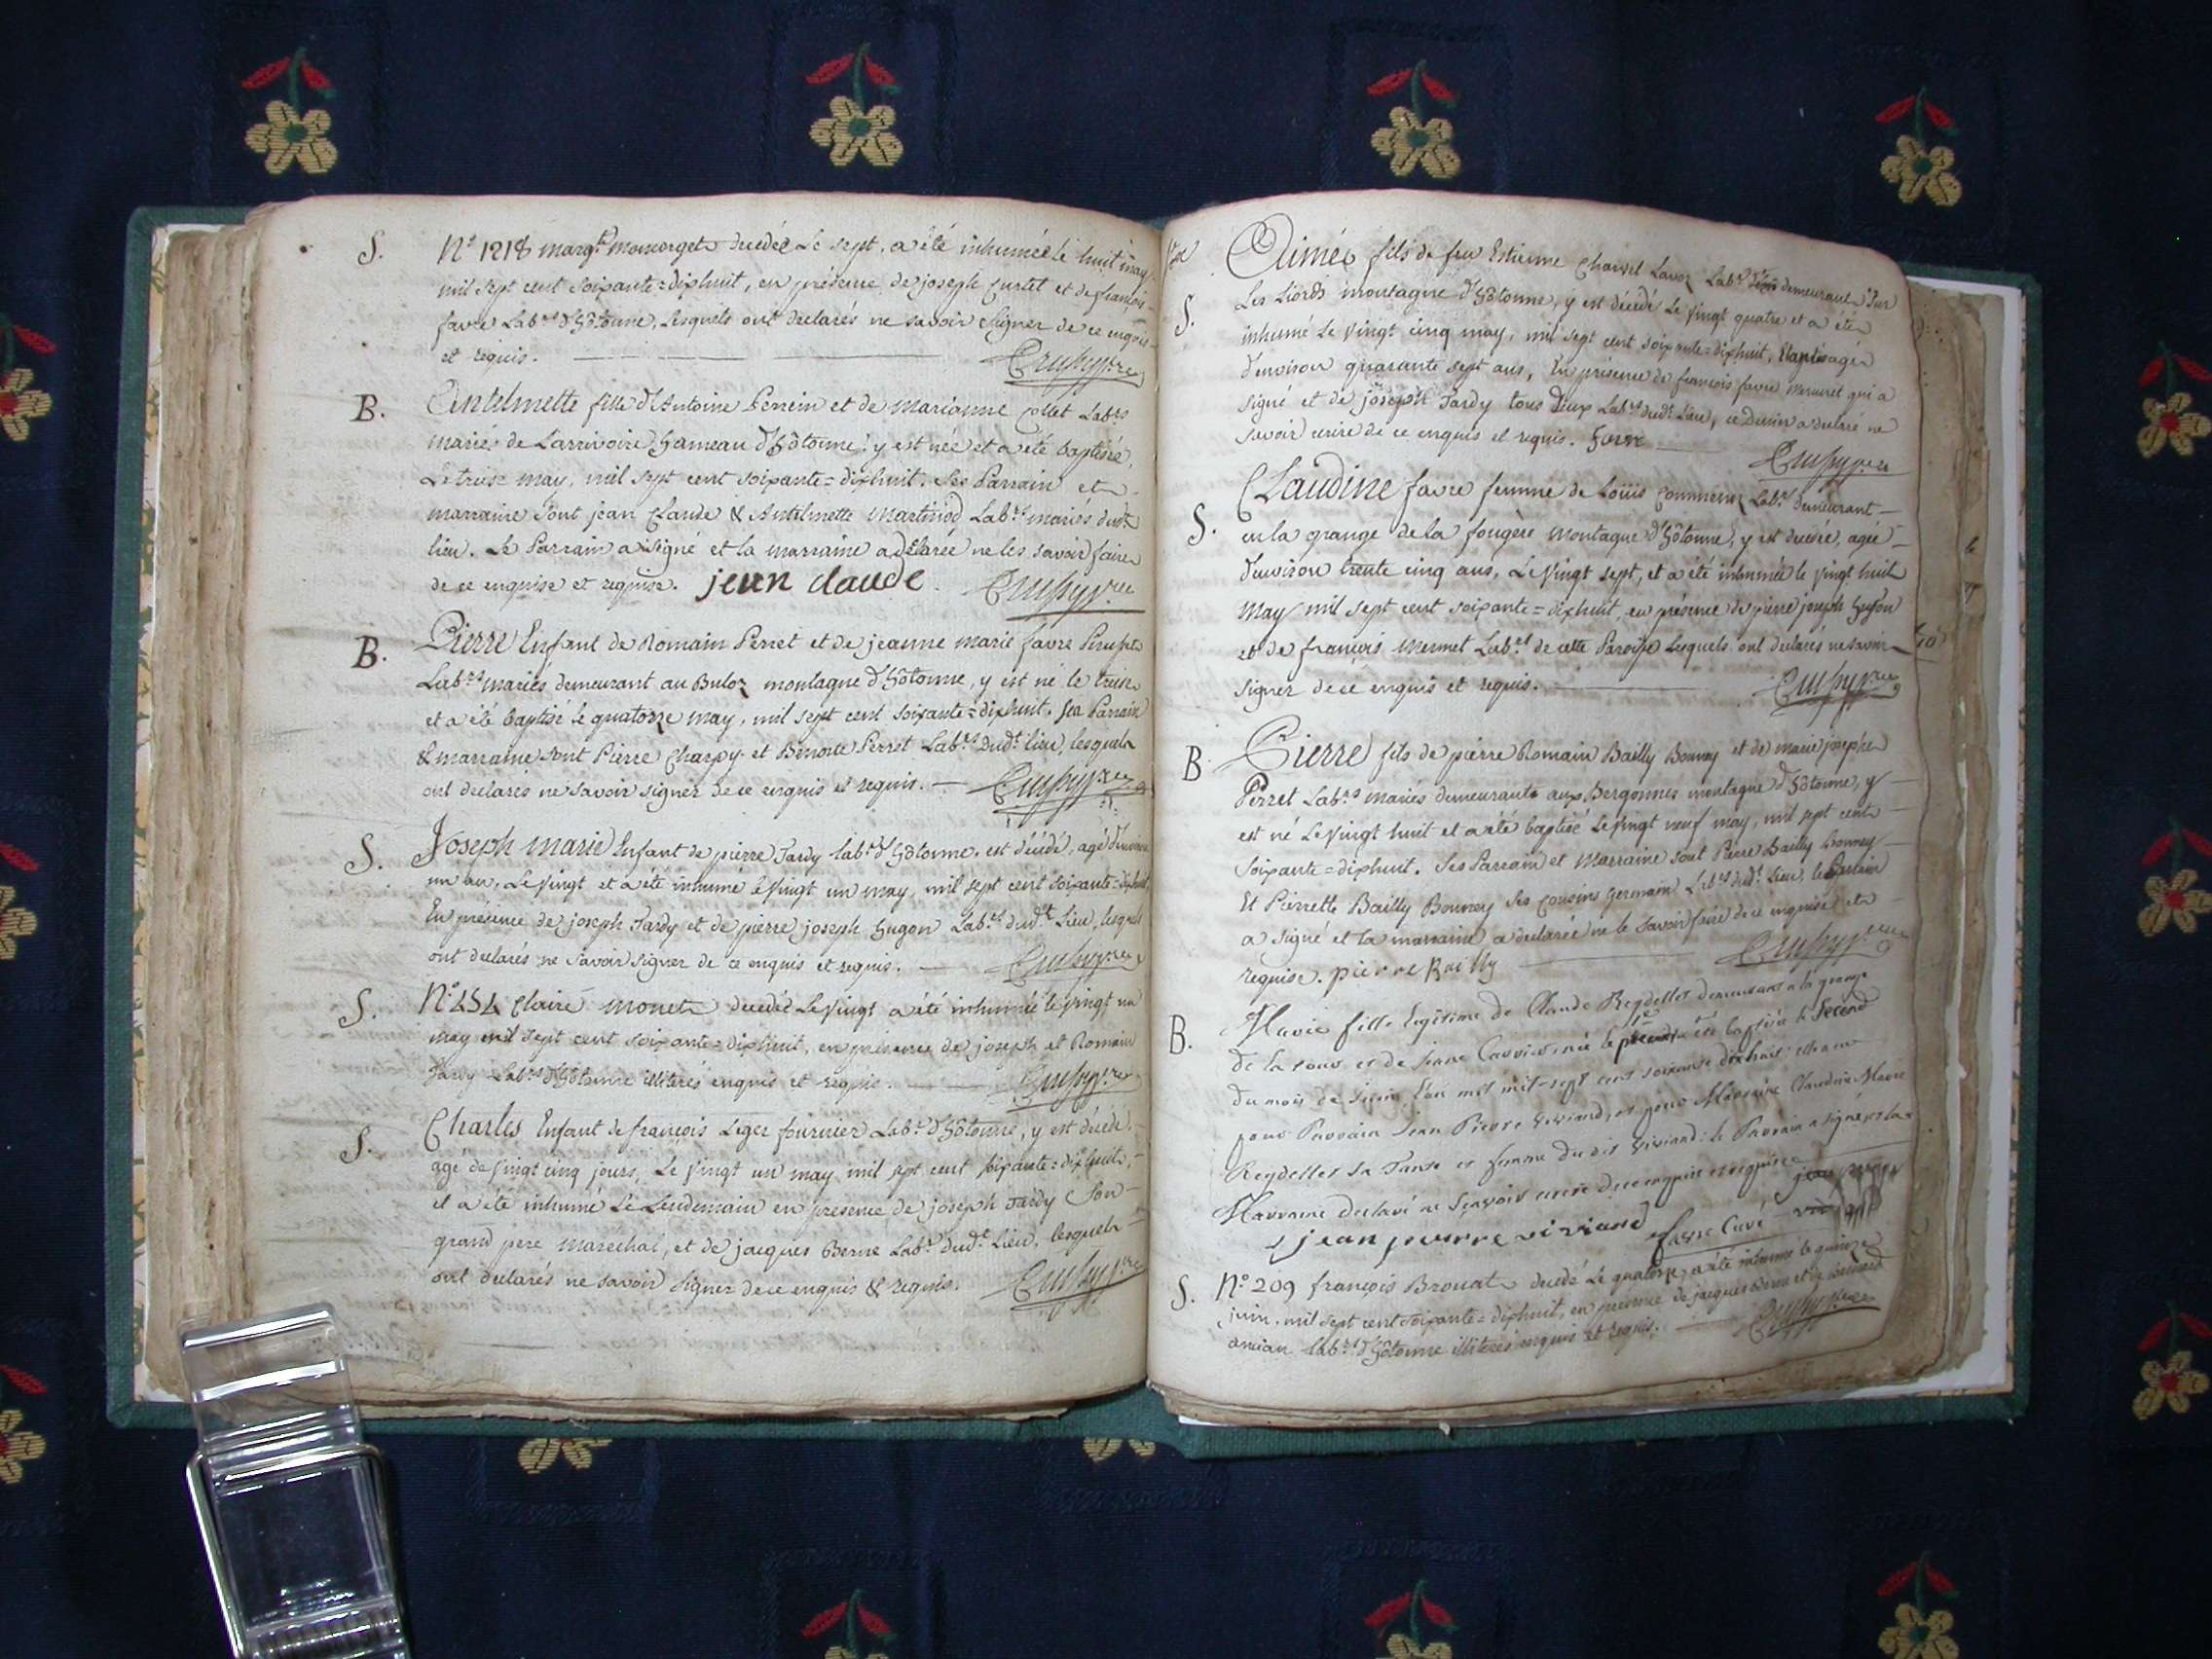 S. N.º 1218 marg.te monorget decedée Le sept, a été inhumée le huit may
mil sept cent soixante=dixhuit, en présence de joseph curtet et de françois
favre Lab.rs d'hôtonne, Lesquels ont declarés ne savoir signer de ce enquis
et requis.
B. Antelmette fille d'Antoine Perrein et de marianne Collet Lab.rs
mariés de Larrivoire hameau d'hôtonne y est née et a été baptisée
Le treise may, mil sept cent soixante=dixhuit. Ses Parrain et
marraine sont jean Claude & Antelmette martinod Lab.rs mariés dud.t
lieu. Le Parrain a signé et la marraine a declarée ne les savoir faire
de ce enquise et requise. jean claude.
B. Pierre Enfant de Romain Perret et de jeanne marie favre
Lab.rs mariés demeurant au Buloz montagne d'hôtonne, y est né le treise
et a été baptisé le quatorze may, mil sept cent soixante=dixhuit. Ses Parrain
& marraine sont Pierre Charpy et Benoite Perret Lab.rs Dud.t lieu, lesquels
ont declarés ne savoir signer de ce enquis et requis.
S. Joseph marie Enfant de pierre Tardy lab.r d'hôtonne. est décédé, agé d'environ
un an, Le vingt et a été inhumé le vingt un may, mil sept cent soixante=dixhuit,
En présence de joseph Tardy et de pierre joseph hugon Lab.rs dud.t Lieu, lesquels
ont declarés ne savoir signer de ce enquis et requis.
S. N.º 454 Claire monet decedée Le vingt a été inhumée le vingt un
may mil sept cent soixante=dixhuit, en présence de joseph et Romain
Tardy Lab.rs d'hôtonne illiterés enquis et requis.
S. Charles Enfant de françois Leger fournier Lab.r d'hôtonne, y est décédé
agé de vingt cinq jours, Le vingt un may mil sept cent soixante=dixhuit,
et a été inhumé Le Lendemain en présence de joseph Tardy Son
grand pere marechal, et de jacques Berne Lab.r dud.t Lieu, lesquels
ont declarés ne savoir signer de ce enquis & requis.
Aimé fils de feu Estienne Charvet Lavoz Lab.r demeurant sur
S. Les Liords montagne d'hôtonne, y est décédé Le vingt quatre et a été
inhumé Le vingt cinq may, mil sept cent soixante=dixhuit, agé
d'environ quarante sept ans, En présence de françois favre mermet qui a
signé et de joseph Tardy tous deux Lab.rs dud.t Lieu, ce Dernier a declaré ne
savoir ecrire de ce enquis et requis. favre
Claudine favre femme de Loüis Lab.r demeurant
S. en la grange de la fougère montagne d'hôtonne, y est decedée, agée
d'environ trente cinq ans, Le vingt sept, et a été inhumée le vingt huit
May mil sept cent soixante=dixhuit, en présence de pierre joseph hugon
et de françois mermet Lab.rs de cette Paroisse Lesquels ont declarés ne savoir
signer de ce enquis et requis.
B Pierre fils de pierre Romain Bailly Bonney et de marie josephe
Perret Lab.rs mariés demeurants aux bergonnes montagne d'hôtonne, y
est né Le vingt huit et a été baptisé Le vingt neuf may, mil sept cent
soixante=dixhuit. Ses Parrain et Marraine sont Pierre Bailly Bonney
Et Pierrette Bailly Bonney Ses Cousins Germain Lab.rs dud.t Lieu, le Parrain
a signé et la marraine a declarée ne le savoir faire de ce enquise et
requise. pierre Bailly
B. Marie fille Legitime de Claude Reydellet demeurant a la grange
de la cour et de Jeane Carrier, née le et a été baptisée le Second
du mois de Juin L'an mil sept cent soixante dixhuit; elle a eu
pour Parrain Jean Pierre Viviand, et pour Marraine Claudine Marie
Reydellet sa Tante et femme du dit Viviand: le Parrain a signé et la
Marraine declaré ne Sçavoir ecrire de ce enquise et requise
jean pierre viviand favre Curé
S. N.º 209 françois Brouat decedé Le quatorze, a été inhumé le quinze
juin, mil sept cent soixante=dixhuit, en présence de jacques Berne et de Bernard
ancian Lab.rs d'hôtonne illiterés enquis et requis.